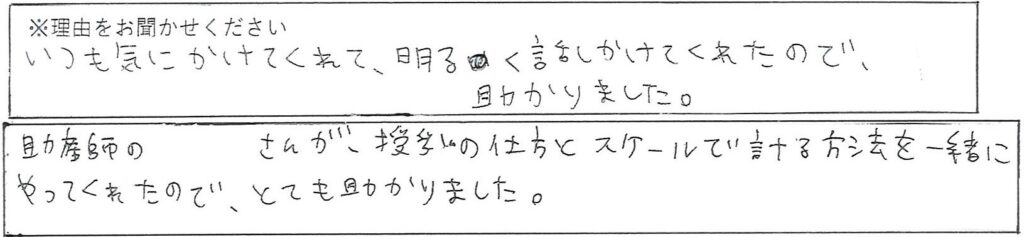 ※理由をお聞かせください
いつも気にかけてくれて、明るく話しかけてくれたので、
助かりました。
助産師の さんが、授乳の仕方とスケールで計る方法を一緒に
やってくれたので、とても助かりました。